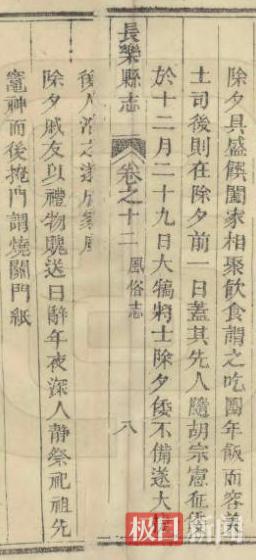 除夕具盛饌闔家相聚飲食謂之吃團年飯而容美
土司後則在除夕前一日蓋其先人隨胡宗憲征倭
於十二月二十九日大犒將士除夕倭不備遂大捷
長樂縣志 卷之十二 風俗志 八
後人沿之遂成家風
除夕戚友以禮物餽送曰辭年夜深人靜祭祀祖先
竈神而後掩門謂燒關門紙
极目新闻